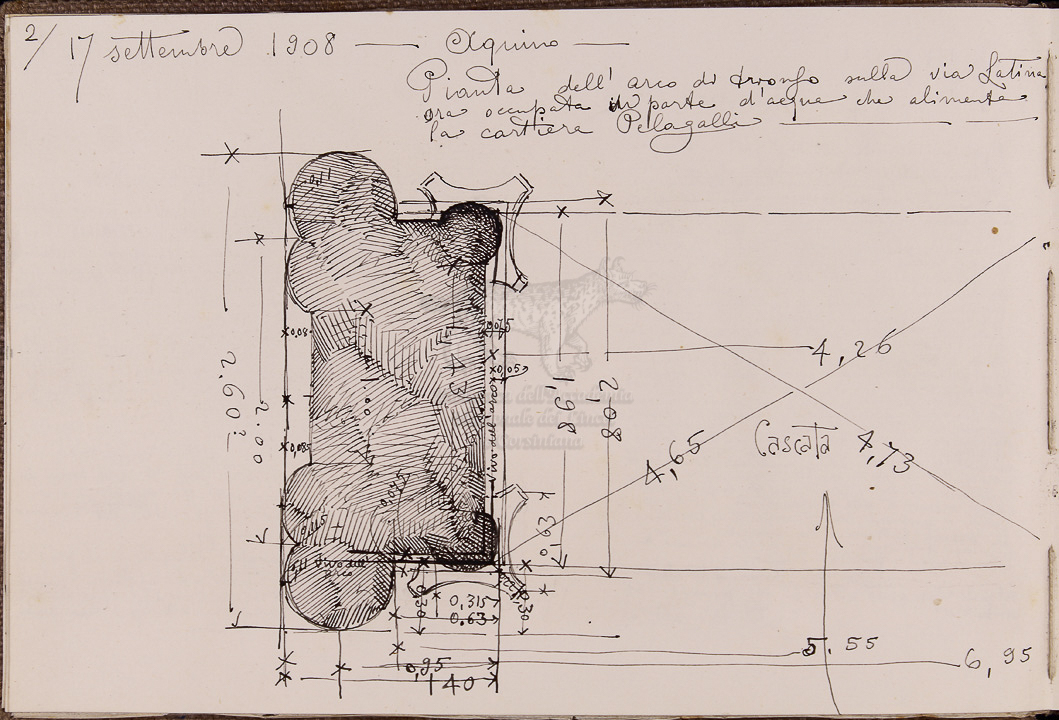 2/ 17 settembre 1908 — Aquino —
Pianta dell'arco di trionfo sulla via Latina
ora occupata in parte d'acqua che alimenta
la cartiera Pelagalli
0,11
0,08
0,08
2.60?
2.00
1,00
1,43
0,015
0,05
vivo dell'arco
1,98
2,08
4,26
4,65
Cascata
4,73
0,63
0,045
0,015
0,11 vivo dell'arco
0,30
0,315
0.63
0,30
5.55
6,95
0,95
1 40